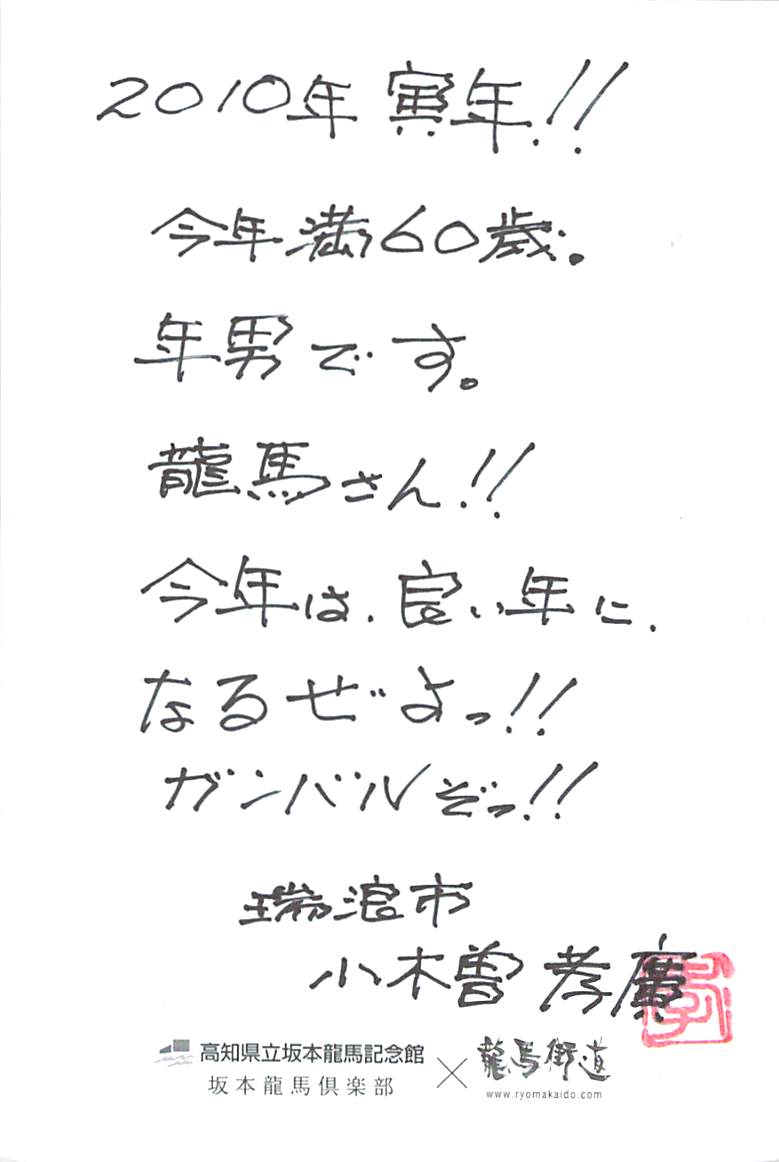 2010年 寅年!!
今年満60歳。
年男です。
龍馬さん!!
今年は、良い年に、
なるぜよっ!!
ガンバルぞっ!!
瑞浪市
小木曽 孝廣
高知県立坂本龍馬記念館
坂本龍馬倶楽部
×
龍馬街道
www.ryomakaido.com